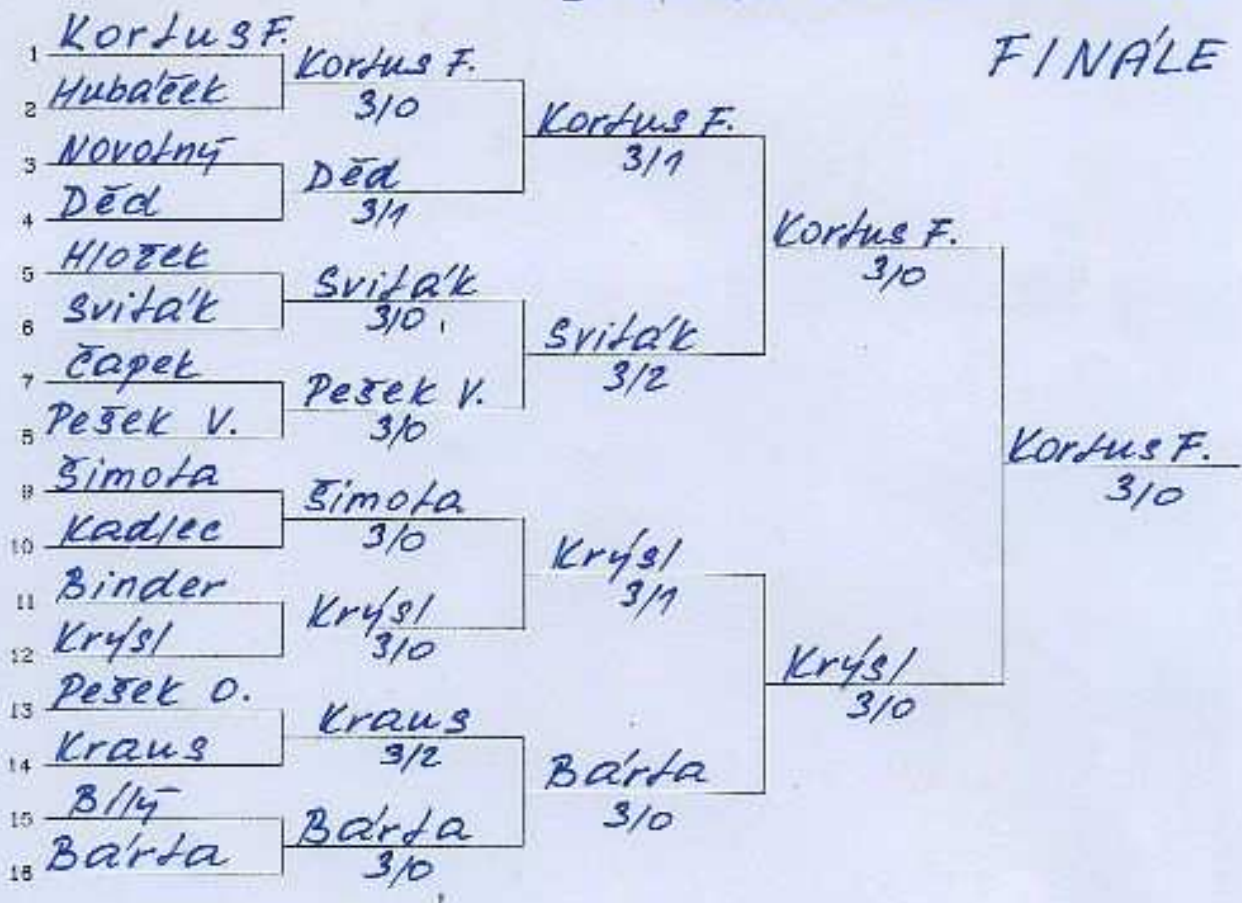 FINÁLE
1 Kortus F.
2 Hubáček
3 Novotný
4 Děd
5 Hložek
6 Sviták
7 Čapek
8 Pešek V.
9 Šimota
10 Kadlec
11 Binder
12 Krýsl
13 Pešek O.
14 Kraus
15 Bílý
16 Bárta
Kortus F.
3/0
Děd
3/1
Sviták
3/0
Pešek V.
3/0
Šimota
3/0
Krýsl
3/0
Kraus
3/2
Bárta
3/0
Kortus F.
3/1
Sviták
3/2
Krýsl
3/1
Bárta
3/0
Kortus F.
3/0
Krýsl
3/0
Kortus F.
3/0